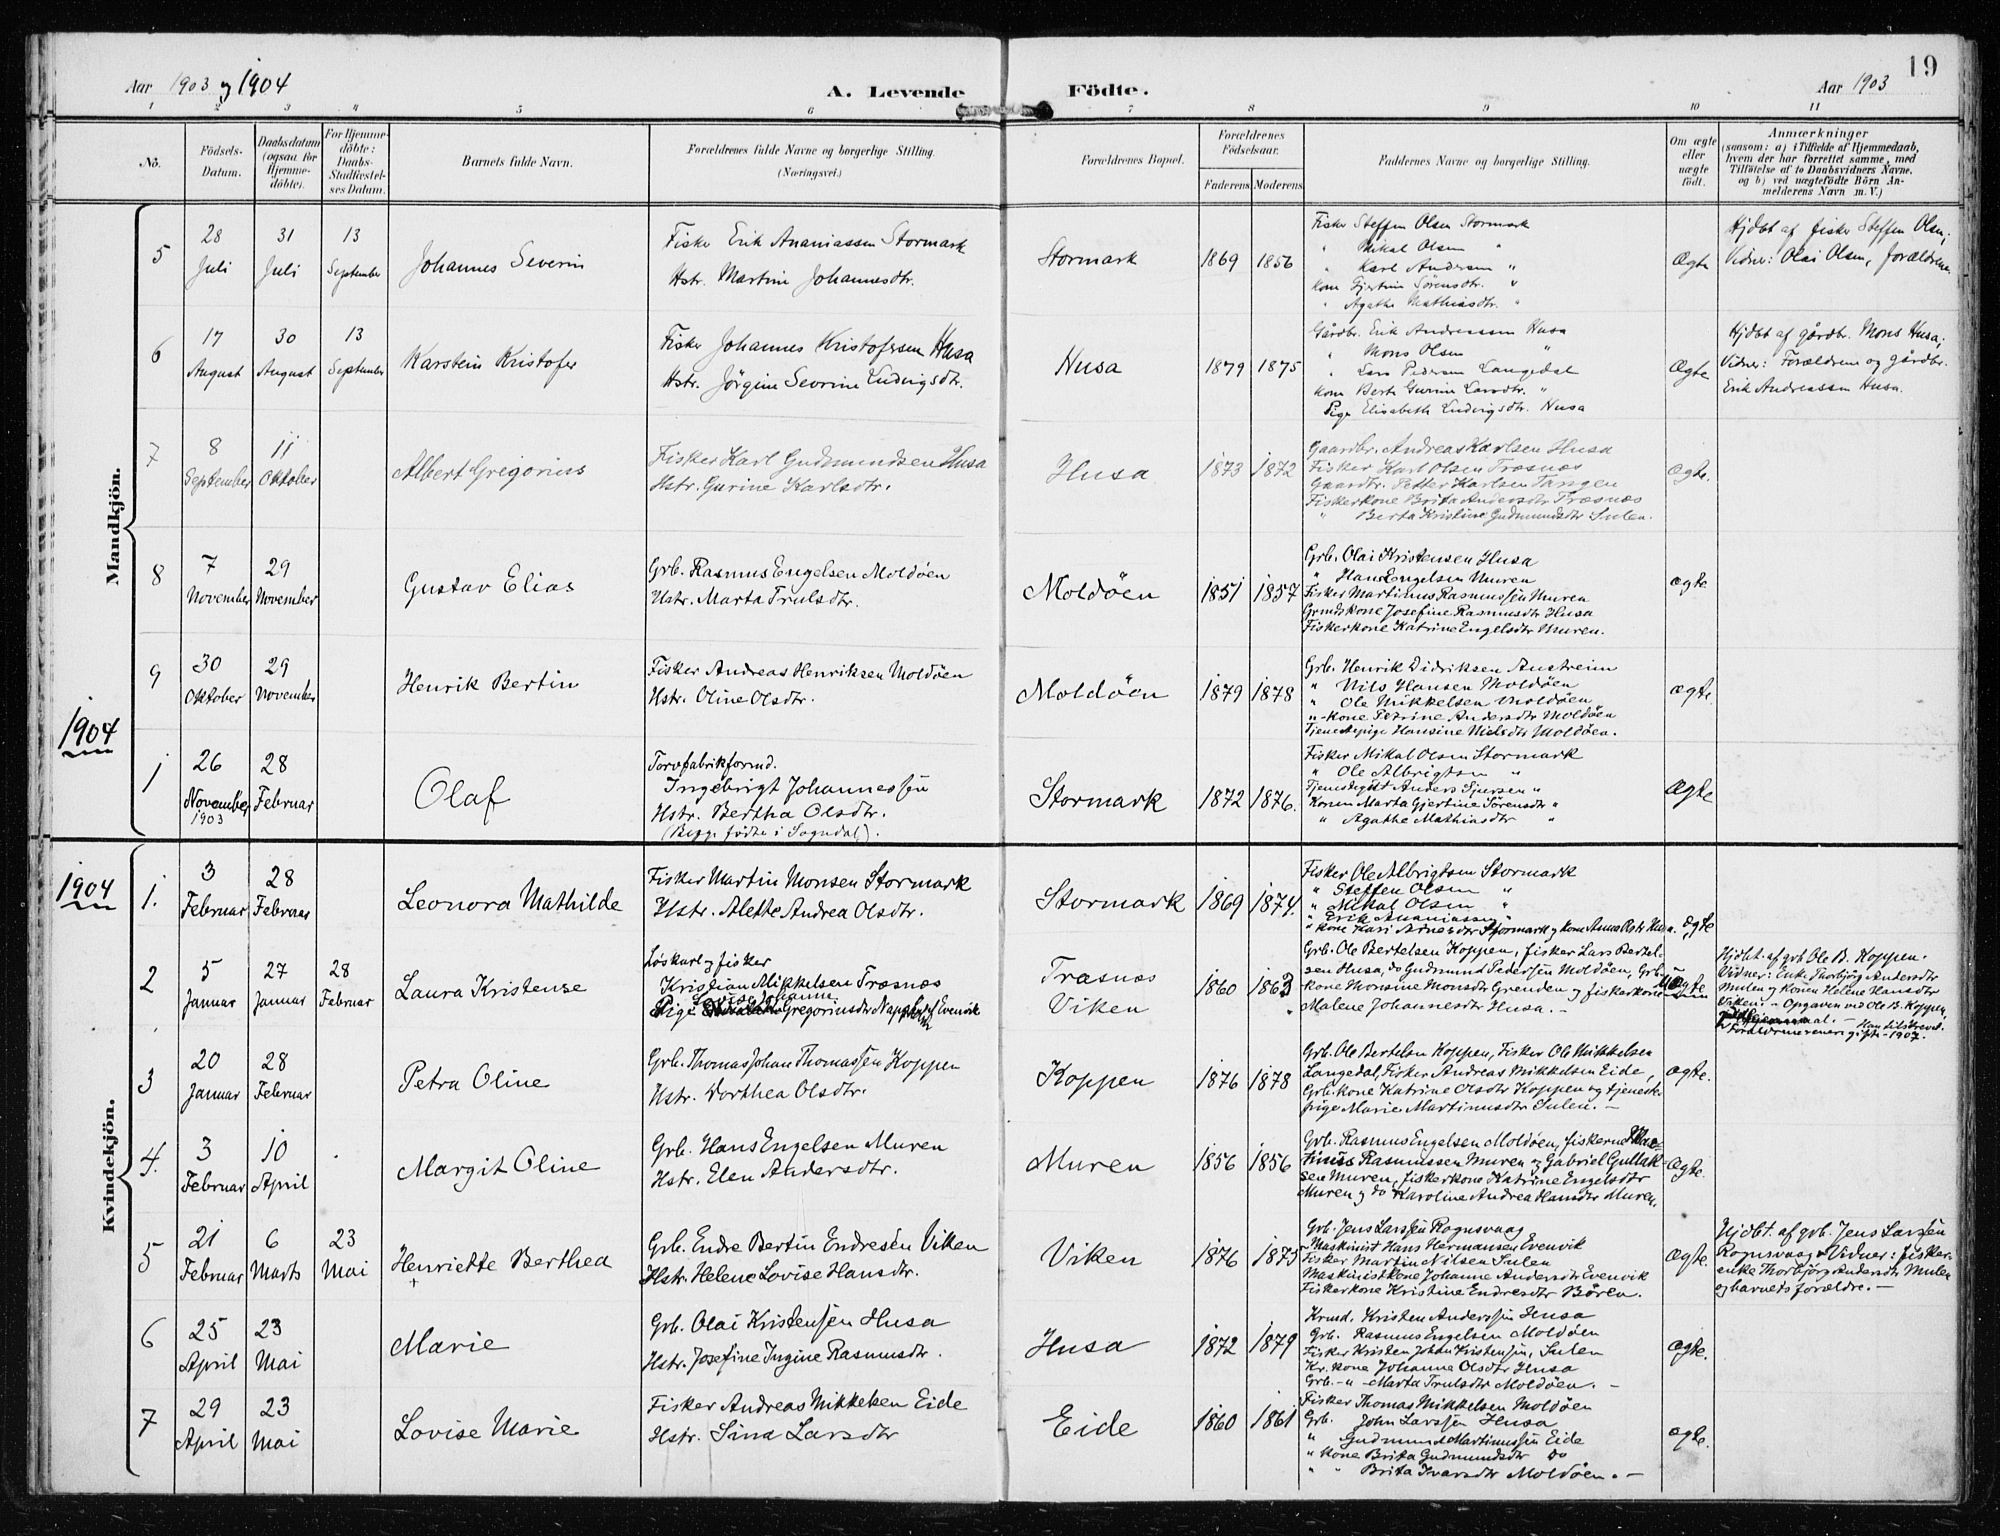 19
Aar 1903 og 1904
A. Levende Födte.
Aar 1903
1 2 3 4 5 6 7 8 9 10 11
No.
Födsels-Datum.
Daabsdatum (ogsaa for Hjemme-döbte).
For Hjemme-döbte: Daabs-Stadfæstel-ses Datum.
Barnets fulde Navn.
Forældrenes fulde Navne og borgerlige Stilling.
(Næringsvei.)
Forældrenes Bopæl.
Forældrenes Födselsaar.
Faderens Moderens
Faddernes Navne og borgerlige Stilling.
Om ægte eller uægte födt.
Anmærkninger
(saasom: a) i Tilfælde af Hjemmedaab,
hvem der har forrettet samme, med
Tilföielse af to Daabsvidners Navne.
og b) ved uægtefödte Börn An-
melderens Navn m. V.)
Mandkjön.
5
28 Juli
31 Juli
13 September
Johannes Severin
Fisker Erik Ananiassen Stormark
Hstr. Martine Johannesdtr.
Stormark
1869 1856
Fisker Steffen Olsen Stormark
" Mikal Olsen "
" Karl Andersen "
Kone Gjertine Sörensdtr. "
" Agathe Mathiasdtr. "
Ægte
Hjdöbt af fisker Steffen Olsen;
Vidner: Olai Olsen, forældrene
6
17 August
30 August
13 September
Karstein Kristofer
Fisker Johannes Kristofersen Husa
Hstr. Jörgine Sevrine Ludvigsdtr.
Husa
1879 1875
Gårdbr. Erik Andreassen Husa
" Mons Olsen "
" Lars Pedersen Langedal
Kone Berte Gurine Larsdtr. "
Pige Elisabeth Ludvigsdtr. Husa
Ægte
Hjdöbt af gårdbr. Mons Husa;
Vidner: Forældrene og gårdbr.
Erik Andreassen Husa.
7
8 September
11 Oktober
Albert Gregorius
Fisker Karl Gudmundsen Husa
Hstr. Gurine Karlsdtr.
Husa
1873 1872
Gaardbr. Andreas Karlsen Husa
Fisker Karl Olsen Træsnæs
Gaardbr. Petter Karlsen Tangen
Fiskerkone Brita Andersdtr Træsnæs
" Berta Kristine Gudmundsdtr Sulen.
ægte.
8
7 November
29 November
Gustav Elias
Grb. Rasmus Engelsen Moldöen
Hstr. Marta Trulsdtr.
Moldöen
1851 1857
Grb. Olai Kristensen Husa
" Hans Engelsen Muren
Fisker Martinus Rasmussen Muren
Grmdskone Josefine Rasmusdtr Husa
Fiskerkone Katrine Engelsdtr Muren.
ægte
9
30 Oktober
29 November
Henrik Bertin
Fisker Andreas Henriksen Moldöen
Hstr. Oline Olsdtr.
Moldöen
1879 1878
Grb. Henrik Didriksen Austreim
" Nils Hansen Moldöen
" Ole Mikkelsen Moldöen
"-kone Petrine Andersdtr Moldöen
Tjenestepige Hansine Nielsdtr Moldöen.
ægte.
1904
1
26 November 1903
28 Februar
Olaf
Torvfabrikformd.
Ingebrigt Johannessen
Hstr. Bertha Olsdtr.
(Begge födte i Sogndal).
Stormark
1872 1876.
Fisker Mikal Olsen Stormark
" Ole Albrigtsen "
Tjenestegut Anders Sjursen "
Konen Marta Gjertine Sörensdtr "
" Agathe Mathiasdtr "
Ægte
Kvindekjön.
1904
1.
3 Februar
28 Februar
Leonora Mathilde
Fisker Martin Monsen Stormark
Hstr. Alette Andrea Olsdtr.
Stormark
1869 1874.
Fisker Ole Albrigtsen Stormark
" Steffen Olsen "
" Mikal Olsen "
" Erik Ananiassen "
" kone Kari Arnesdtr Stormark og kone Anna Olsdtr Husa.
ægte
2
5 Januar
27 Januar
28 Februar
Laura Kristense
Löskarl og fisker
Kristian Mikkelsen Træsnæs
Pige Lovise Johanne Gregoriusdtr
Træsnæs
Viken
1860 1863
Grb. Ole Bertelsen Koppen, fisker Lars Bertel-
sen Husa, do Gudmund Pedersen Moldöen, Grb.
kone Monsine Monsdtr Grenden og fiskerkone
Malene Johannesdtr Husa. –
Uægte
Hjdöbt. af grb Ole B. Koppen.
Vidner: Enke Thorbjörg Andersdtr
Mulen og Konen Helene Hansdtr
Viken. – Opgaven ved Ole B. Koppen,
Forældrene gift 1907.
3
20 Januar
28 Februar
Petra Oline
Grb. Thomas Johan Thomassen Koppen
Hstr. Dorthea Olsdtr.
Koppen
1876 1878
Grb. Ole Bertelsn Koppen, Fisker Ole Mikkelsen
Langedal, Fisker Andreas Mikkelsen Eide,
Grb.kone Katrine Olsdtr Koppen og tjeneste-
pige Marie Martinusdtr Sulen. –
ægte.
4.
3 Februar
10 April
Margit Oline
Grb. Hans Engelsen Muren
Hstr. Elen Andersdtr.
Muren
1856 1856
Grb. Rasmus Engelsen Moldöen, fiskerne Mar-
tinus Rasmussen Muren og Gabriel Gullak-
sen Muren, fiskerkone Katrine Engelsdtr
Muren og do Karoline Andrea Hansdtr Muren.
ægte.
5
21 Februar
6 Marts
23 Mai
Henriette Berthea
Grb. Endre Bertin Endresen Viken
Hstr. Helene Lovise Hansdtr.
Viken
1876 1875
Grb. Jens Larssen Rognsvaag
Maskinist Hans Hermansen Evenvik
Fisker Martin Nilsen Sulen
Maskinistkone Johanne Andersdtr Evenvik
Fiskerkone Kristine Endresdtr Bören.
ægte.
Hjdbt. af grb. Jens Larssen
Rognsvaag. Vidner: fisker-
enke Thorbjörg Andersdtr Mulen
og barnets forældre. –
6
25 April
23 Mai
Marie
Grb. Olai Kristensen Husa
Hstr. Josefine Ingine Rasmusdtr.
Husa
1872 1879
Krmd. Kristen Anderssen Husa
Grb. Rasmus Engelsen Moldöen
Fisker Kristen Johan Kristensen, Sulen
Kr. kone Johanna Olsdtr Husa
Grb. –"– Marta Trulsdtr Moldöen. –
ægte.
7
29 April
23 Mai
Lovise Marie
Fisker Andreas Mikkelsen Eide
Hstr. Sina Larsdtr
Eide
1860 1861
Fisker Thomas Mikkelsen Moldöen
Grb. John Larssen Husa
" Gudmund Martinussen Eide
" kone Brita Gudmundsdtr Do
" " Brita Ivarsdtr Moldöen. –
ægte.